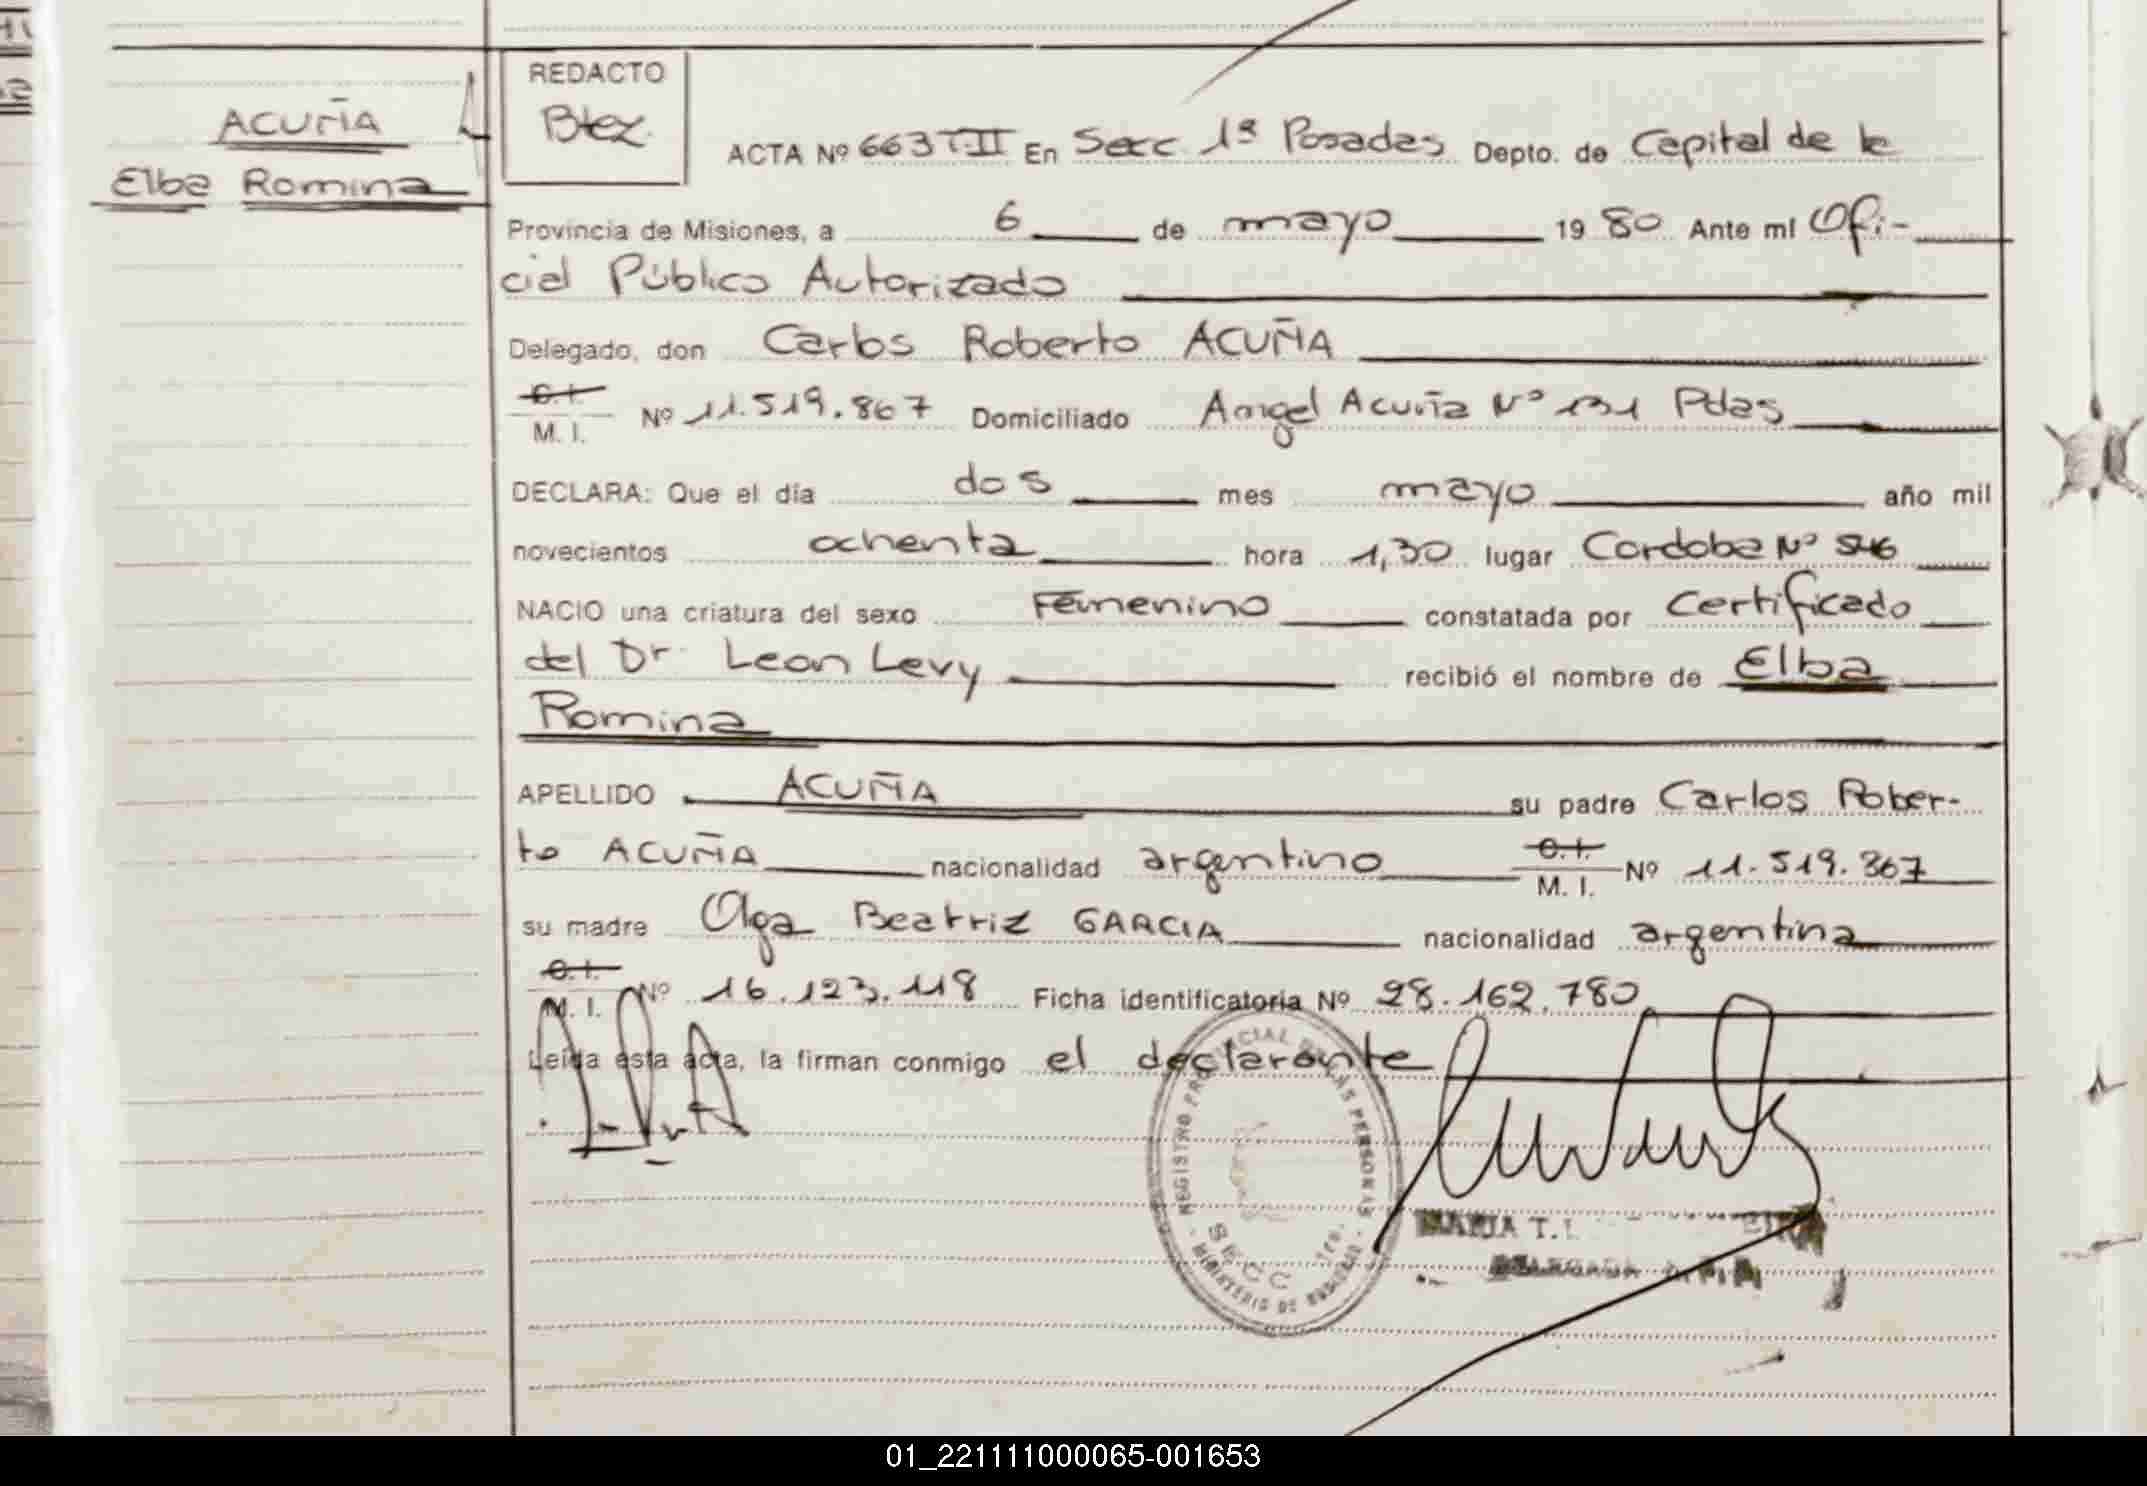 ACUÑA
Elba Romina
REDACTO
ACTA Nº 663 T II En Secc 1ª Posadas Depto. de Capital de la
Provincia de Misiones, a 6 de mayo 19 80 Ante mí Ofi-
cial Público Autorizado
Delegado, don Carlos Roberto ACUÑA
C.I.
M. I. Nº 11.519.867 Domiciliado Angel Acuña Nº 131 Pdas
DECLARA: Que el día dos mes mayo año mil
novecientos ochenta hora 1,30 lugar Cordoba Nº
NACIO una criatura del sexo Femenino constatada por Certificado
del Dr. Leon Levy recibió el nombre de Elba
Romina
APELLIDO ACUÑA su padre Carlos Rober-
to ACUÑA nacionalidad argentino C.I. M. I. Nº 11.519.867
su madre Olga Beatriz GARCIA nacionalidad argentina
C.I.
M. I. Nº 16.123.118 Ficha identificatoria Nº 28.162.780
Leída esta acta, la firman conmigo el declarante
REGISTRO PROVINCIAL DE LAS PERSONAS
SECC
MINISTERIO DE
MARIA T.
DELEGADA
01_221111000065-001653